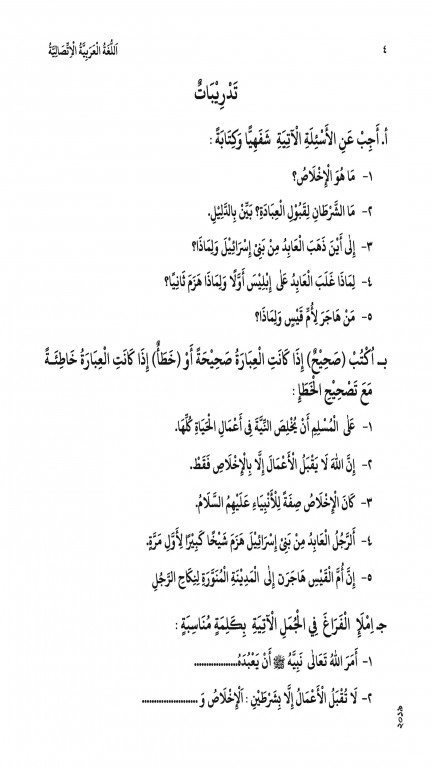 ٤
اَللُّغَةُ الْعَرَبِيَّةُ الْاِتِّصَالِيَّةُ
تَدْرِيْبَاتٌ
أ. أَجِبْ عَنِ الْأَسْئِلَةِ الْآتِيَةِ شَفَهِيًّا وَكِتَابَةً :
١- مَا هُوَ الْإِخْلَاصُ؟
٢- مَا الشَّرْطَانِ لِقَبُولِ الْعِبَادَةِ؟ بَيِّنْ بِالدَّلِيْلِ.
٣- إِلَى أَيْنَ ذَهَبَ الْعَابِدُ مِنْ بَنِيْ إِسْرَائِيْلَ وَلِمَاذَا؟
٤- لِمَاذَا غَلَبَ الْعَابِدُ عَلَى إِبْلِيْسَ أَوَّلًا وَلِمَاذَا هَزَمَ ثَانِيًا؟
٥- مَنْ هَاجَرَ لِأُمِّ قَيْسٍ وَلِمَاذَا؟
بـ. اُكْتُبْ (صَحِيْحٌ) إِذَا كَانَتِ الْعِبَارَةُ صَحِيْحَةً أَوْ (خَطَأٌ) إِذَا كَانَتِ الْعِبَارَةُ خَاطِئَةً
مَعَ تَصْحِيْحِ الْخَطَإِ :
١- عَلَى الْمُسْلِمِ أَنْ يُخْلِصَ النِّيَّةَ فِي أَعْمَالِ الْحَيَاةِ كُلِّهَا.
٢- إِنَّ اللهَ لَا يَقْبَلُ الْأَعْمَالَ إِلَّا بِالْإِخْلَاصِ فَقَطْ.
٣- كَانَ الْإِخْلَاصُ صِفَةً لِلْأَنْبِيَاءِ عَلَيْهِمُ السَّلَامُ.
٤- اَلرَّجُلُ الْعَابِدُ مِنْ بَنِيْ إِسْرَائِيْلَ هَزَمَ شَيْخًا كَبِيْرًا لِأَوَّلِ مَرَّةٍ.
٥- إِنَّ أُمَّ الْقَيْسِ هَاجَرَتْ إِلَى الْمَدِيْنَةِ الْمُنَوَّرَةِ لِنِكَاحِ الرَّجُلِ
جـ. اِمْلَإِ الْفَرَاغَ فِي الْجُمَلِ الْآتِيَةِ بِكَلِمَةٍ مُنَاسِبَةٍ :
١- أَمَرَ اللهُ تَعَالَى نَبِيَّهُ ﷺ أَنْ يَعْبُدَهُ..................
٢- لَا تُقْبَلُ الْأَعْمَالُ إِلَّا بِشَرْطَيْنِ : اَلْإِخْلَاصُ وَ ......................
২০১৯